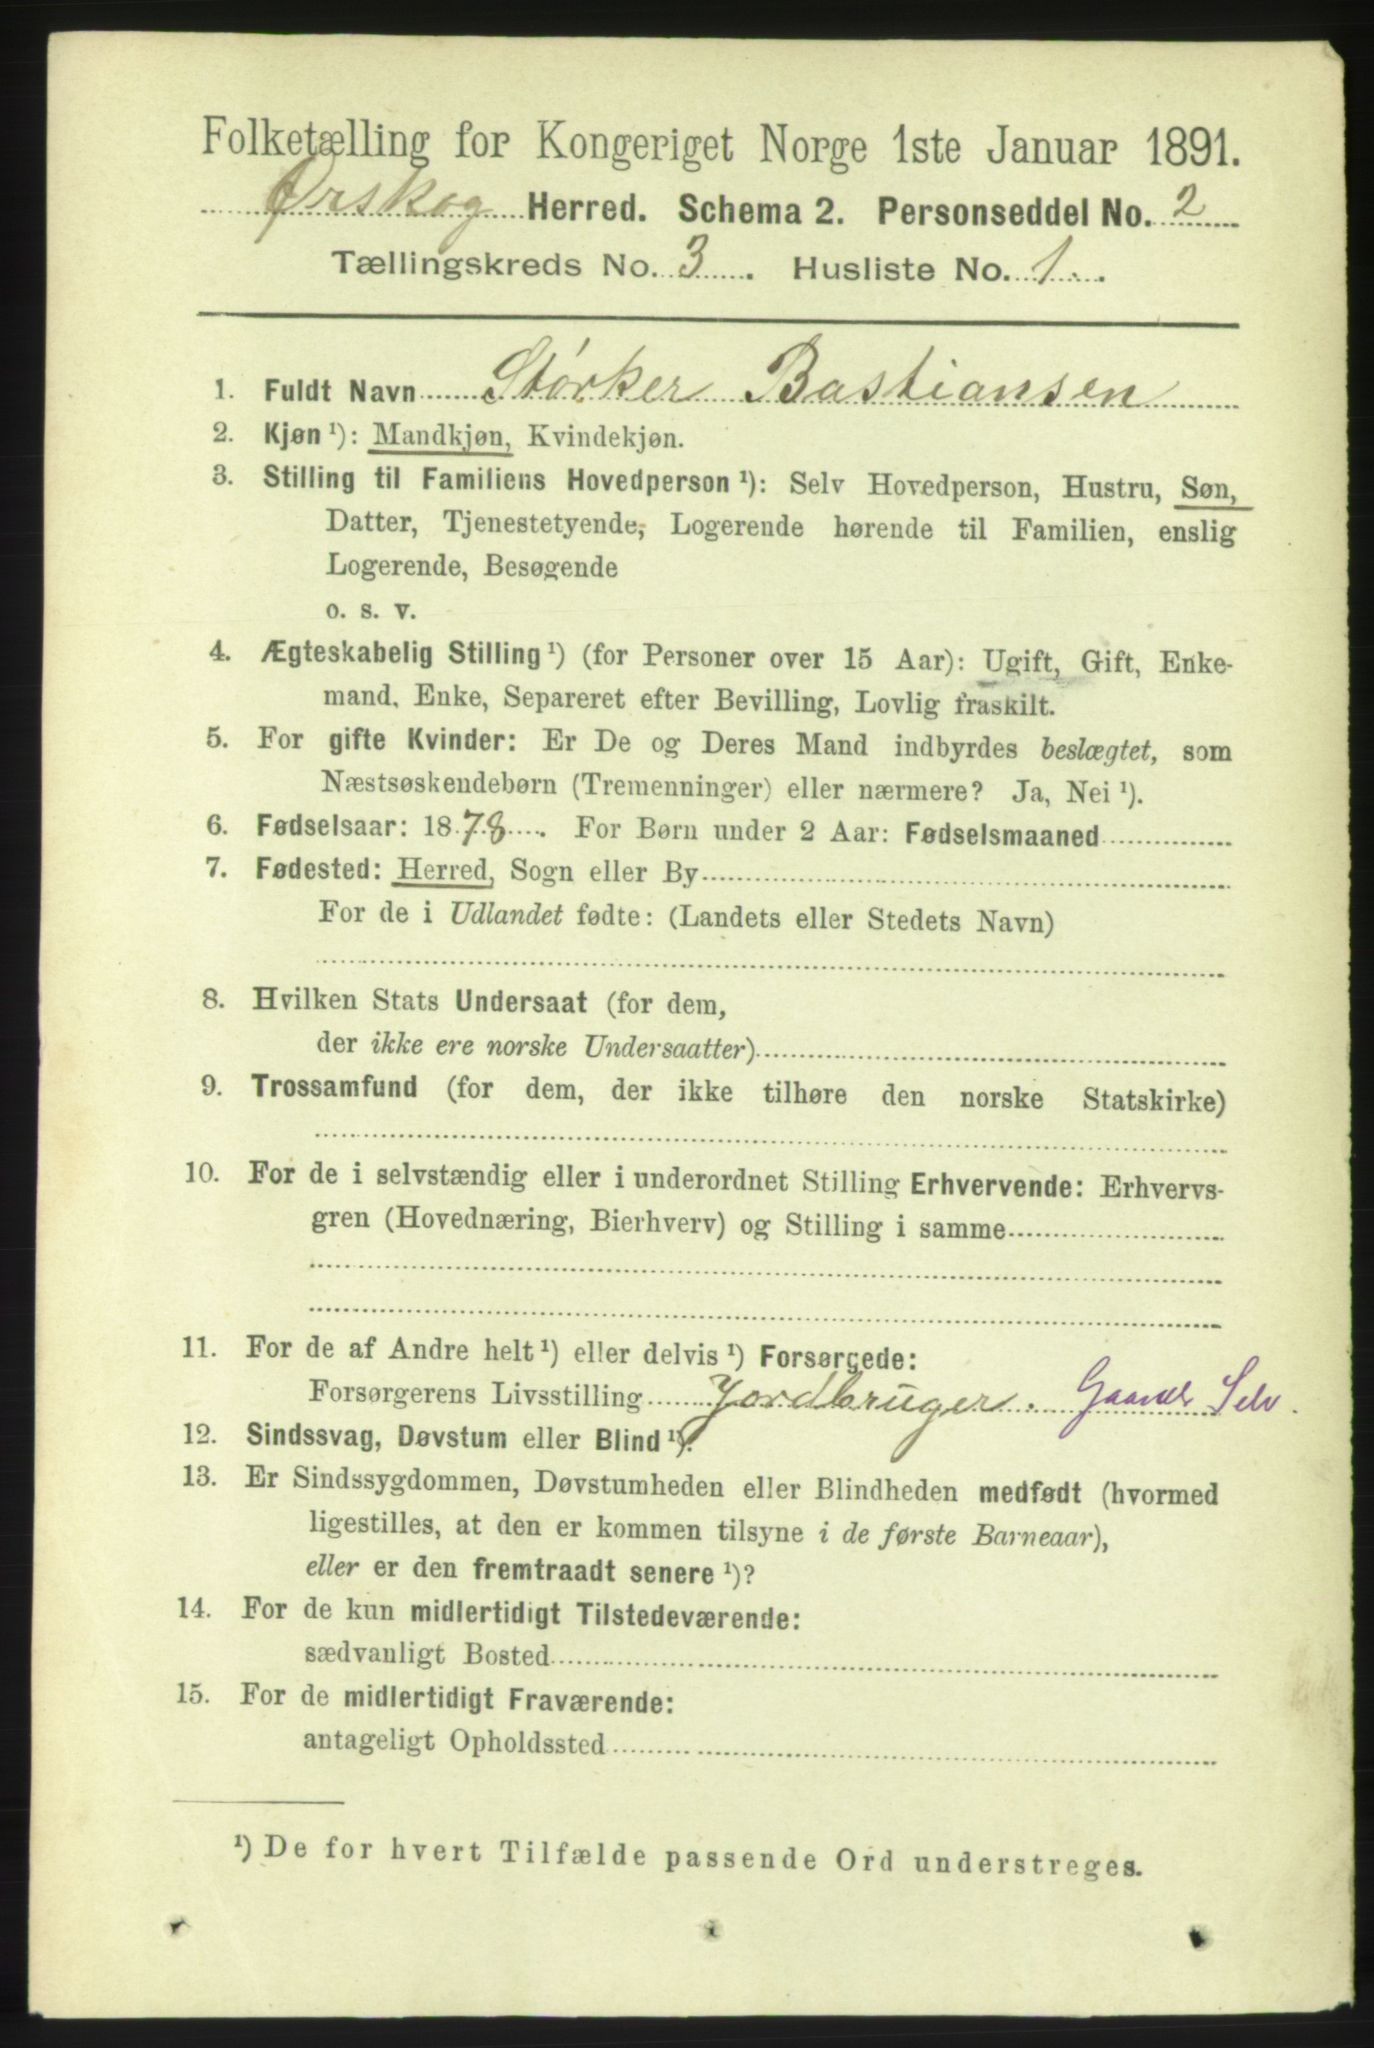 Folketælling for Kongeriget Norge 1ste Januar 1891.
Ørskog Herred. Schema 2. Personseddel No. 2
Tællingskreds No. 3. Husliste No. 1.
1. Fuldt Navn Størker Bastiansen
2. Kjøn ¹): Mandkjøn, Kvindekjøn.
3. Stilling til Familiens Hovedperson ¹): Selv Hovedperson, Hustru, Søn,
Datter, Tjenestetyende, Logerende hørende til Familien, enslig
Logerende, Besøgende
o. s. v.
4. Ægteskabelig Stilling ¹) (for Personer over 15 Aar): Ugift, Gift, Enke-
mand, Enke, Separeret efter Bevilling, Lovlig fraskilt.
5. For gifte Kvinder: Er De og Deres Mand indbyrdes beslægtet, som
Næstsøskendebørn (Tremenninger) eller nærmere? Ja, Nei ¹).
6. Fødselsaar: 1878. For Børn under 2 Aar: Fødselsmaaned
7. Fødested: Herred, Sogn eller By
For de i Udlandet fødte: (Landets eller Stedets Navn)
8. Hvilken Stats Undersaat (for dem,
der ikke ere norske Undersaatter)
9. Trossamfund (for dem, der ikke tilhøre den norske Statskirke)
10. For de i selvstændig eller i underordnet Stilling Erhvervende: Erhvervs-
gren (Hovednæring, Bierhverv) og Stilling i samme
11. For de af Andre helt ¹) eller delvis ¹) Forsørgede:
Forsørgerens Livsstilling Jordbruger. Gaardb Selv.
12. Sindssvag, Døvstum eller Blind ¹).
13. Er Sindssygdommen, Døvstumheden eller Blindheden medfødt (hvormed
ligestilles, at den er kommen tilsyne i de første Barneaar),
eller er den fremtraadt senere ¹)?
14. For de kun midlertidigt Tilstedeværende:
sædvanligt Bosted
15. For de midlertidigt Fraværende:
antageligt Opholdssted
¹) De for hvert Tilfælde passende Ord understreges.